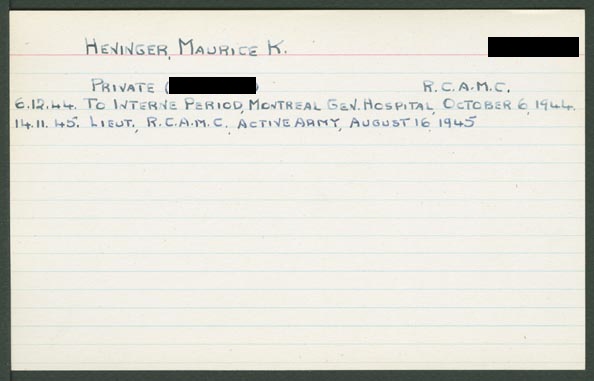 HENINGER, MAURICE K.
PRIVATE ( ) R.C.A.M.C.
6.12.44. TO INTERNE PERIOD, MONTREAL GEN. HOSPITAL, OCTOBER 6, 1944.
14.11.45. LIEUT., R.C.A.M.C., ACTIVE ARMY, AUGUST 16, 1945